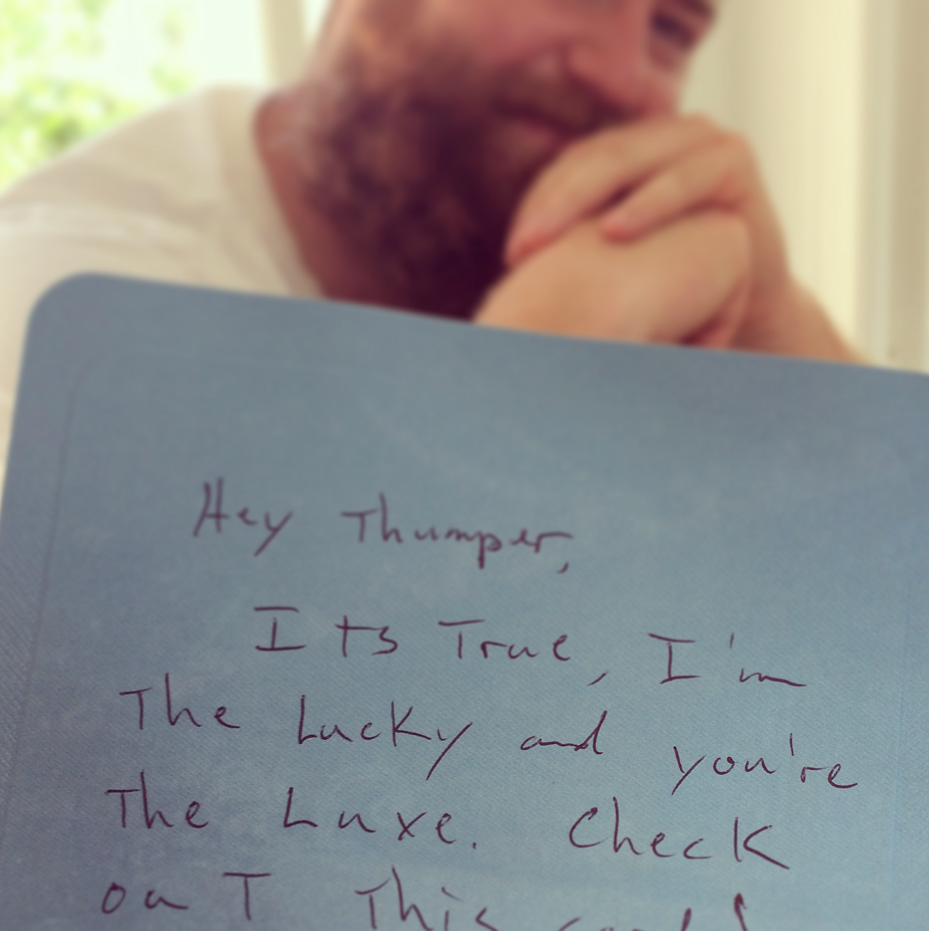 Hey Thumper,
Its True, I'm
The Lucky and you're
The Luxe. Check
ouT This